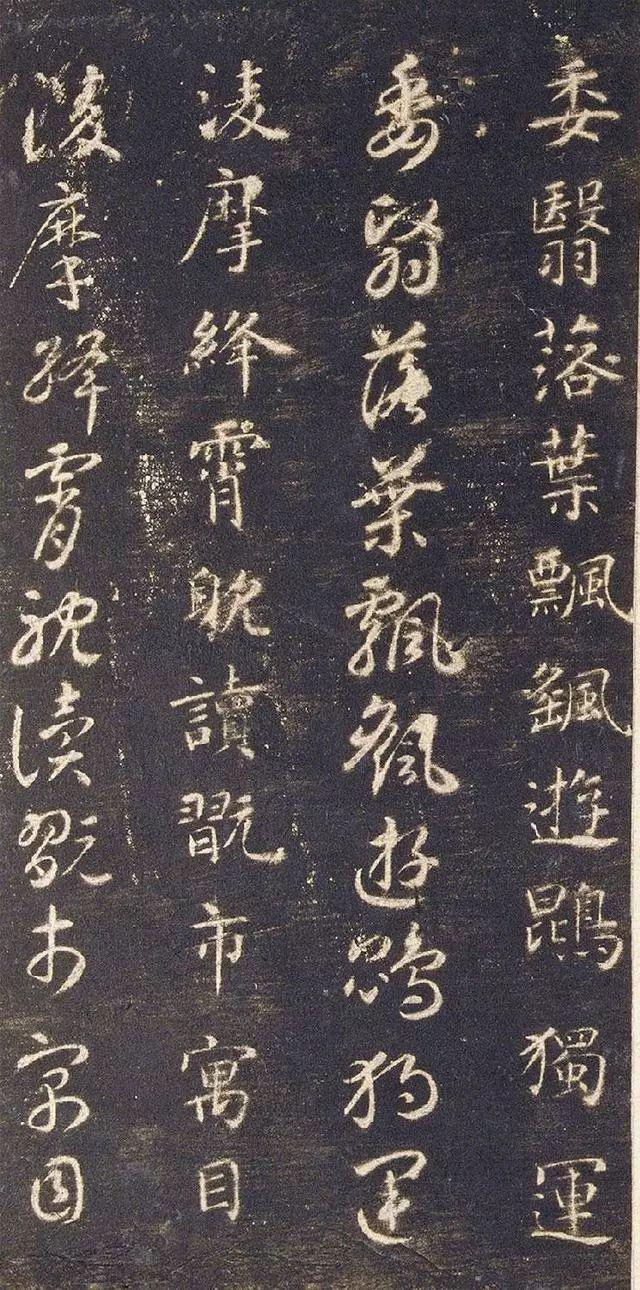 委翳落葉飄颻遊鵾獨運
委翳落葉飄颻遊鵾獨運
淩摩絳霄躭讀翫市寓目
淩摩絳霄躭讀翫市寓目